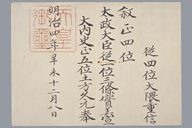 從四位大隈重信
敘正四位
太政大臣從一位三條實美宣
大内史正五位土方久元奉
明治四年辛未十二月八日